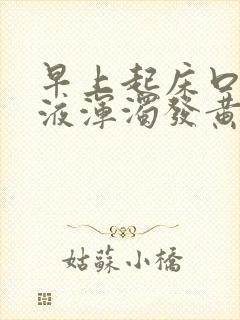 早上起床口
液渾濁發黃
姑蘇小橋